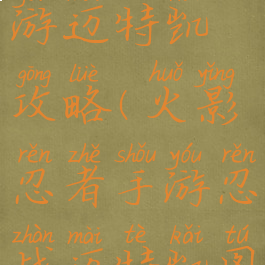 游迈特凯
gōng lüè huǒ yǐng
攻略(火影
rěn zhě shǒu yóu rěn
忍者手游忍
zhàn mài tè kǎi tú
战迈特凯图